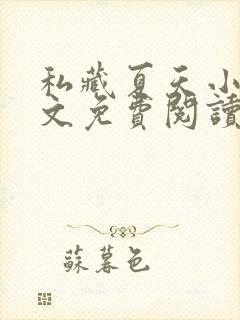 私藏夏天小
文免費閱讀
蘇暮色